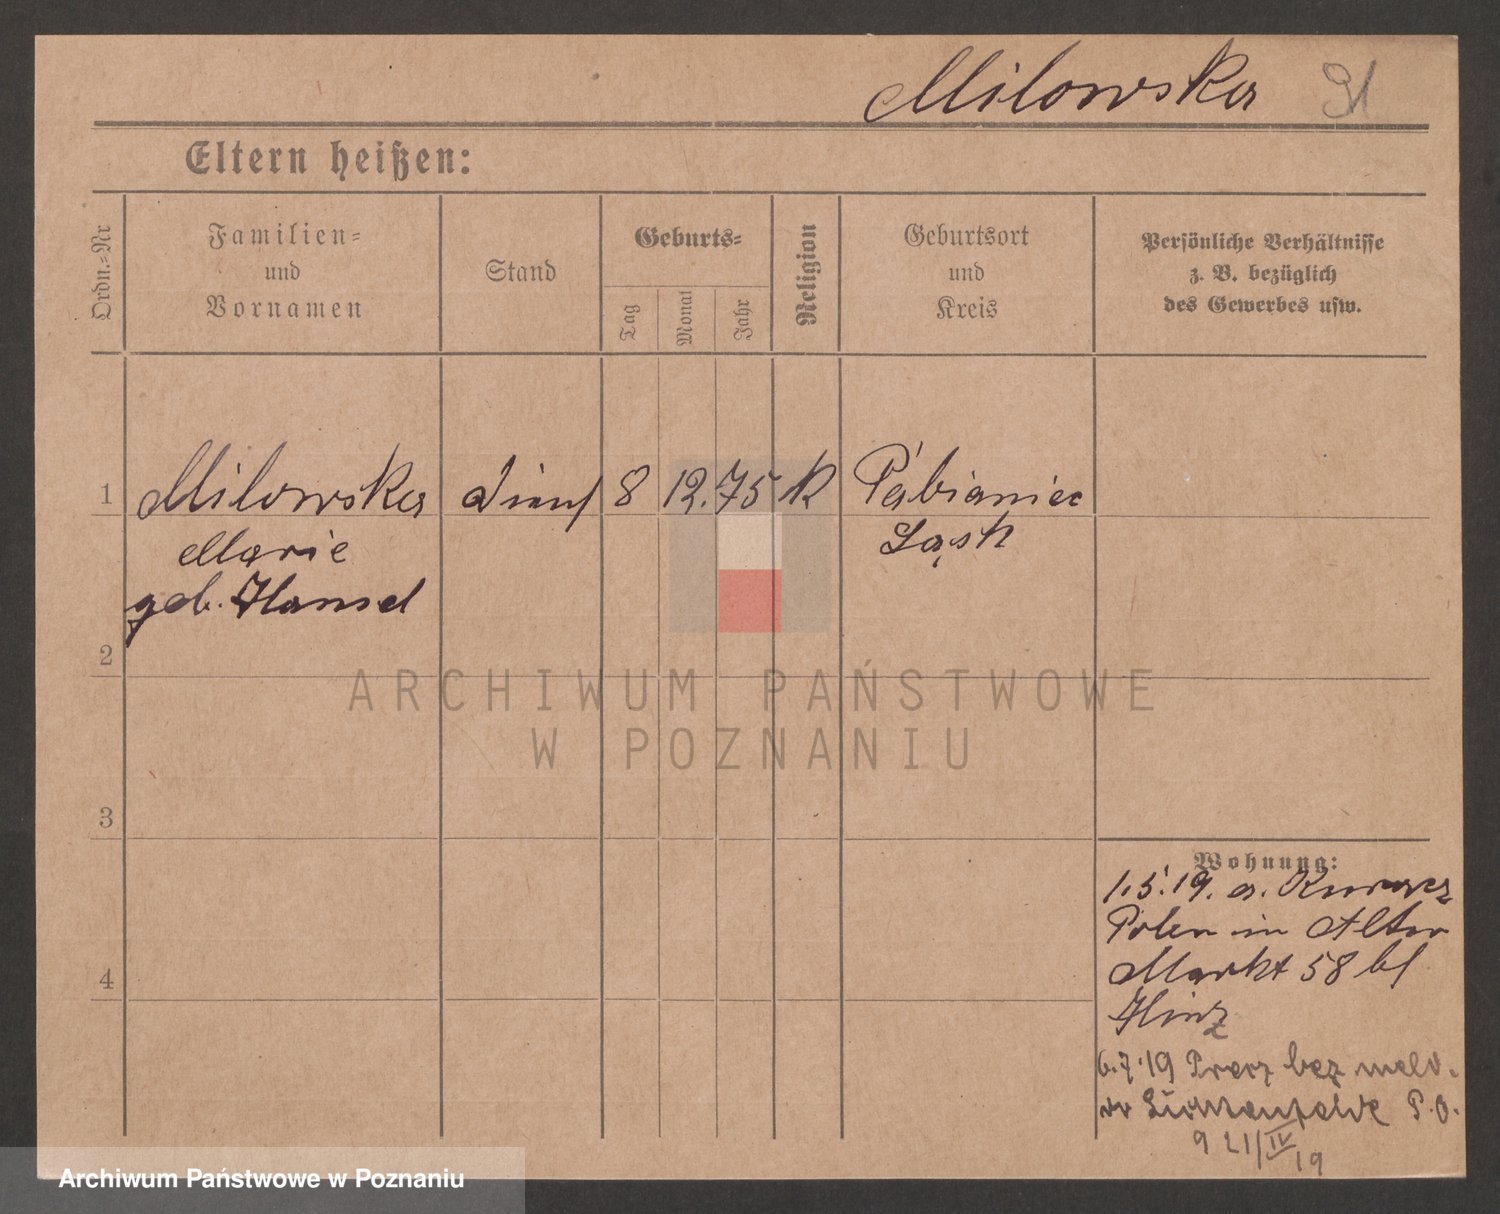 Milowska 91
Eltern heißen:
Ordn.-Nr
Familien-
und
Vornamen
Stand
Geburts-
Tag
Monat
Jahr
Religion
Geburtsort
und
Kreis
Persönliche Verhältnisse
z. B. bezüglich
des Gewerbes usw.
1 Milowska 8 12. 75 K Pabianiec
Marie Łask
geb. Hansel
2
3
4
Wohnung:
1.5.19. a.
Polen in Alter
Markt 58 bl
Hinz
6.7.19 bez meld.
P.O.
ARCHIWUM PAŃSTWOWE
W POZNANIU
Archiwum Państwowe w Poznaniu